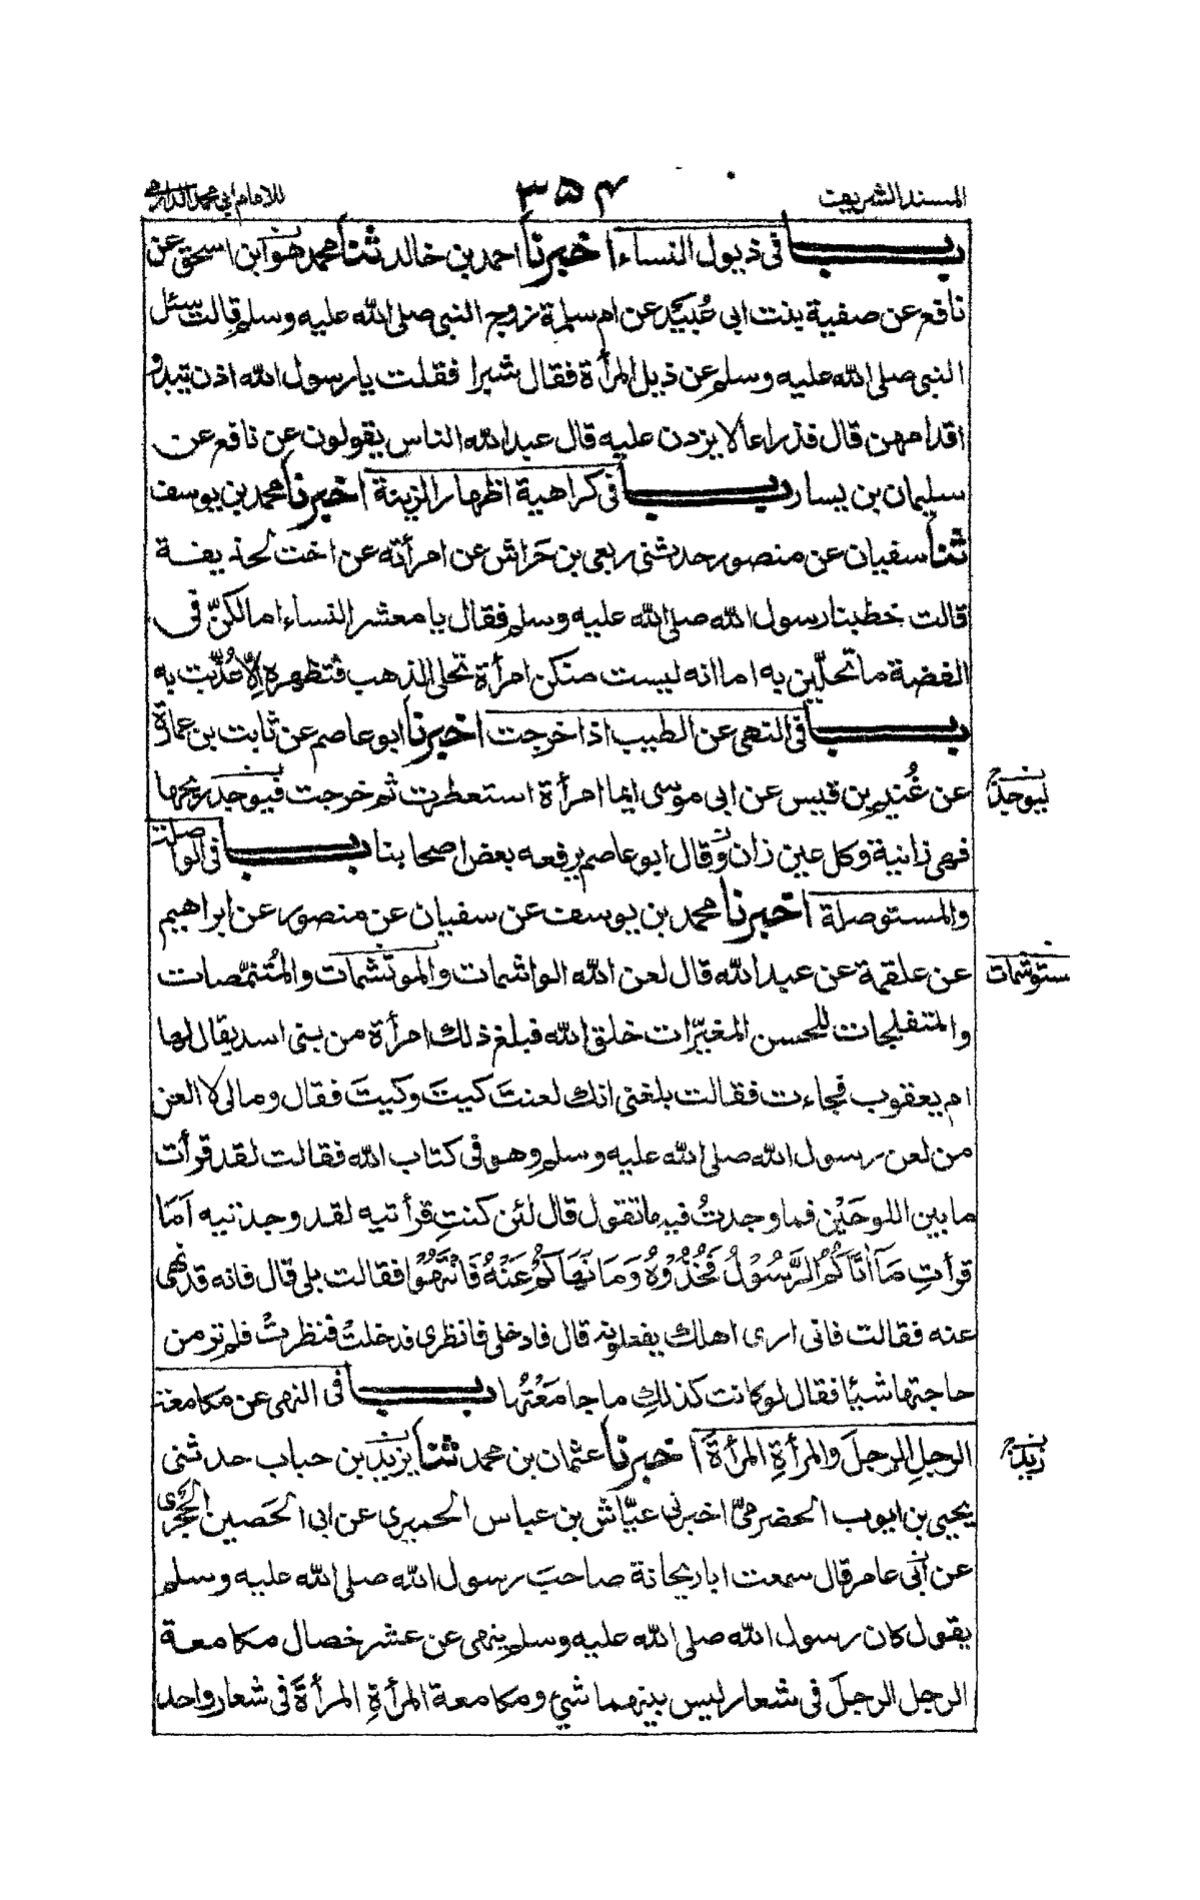 المسند الشريف ٣٥٤ للامام ابي محمد الدارمي
باب فى ذيول النساء اخبرنا احمد بن خالد ثنا محمد هو ابن اسحق عن
نافع عن صفية بنت ابى عُبَيَد عن ام سلمة زوج النبى صلى الله عليه وسلم قالت سئل
النبى صلى الله عليه وسلم عن ذيل المرأة فقال شبرا فقلت يا رسول الله اذن تبدو
اقدامهن قال فذراعا لا يزدن عليه قال عبد الله الناس يقولون عن نافع عن
سليمان بن يسار باب فى كراهية اظهار الزينة اخبرنا محمد بن يوسف
ثنا سفيان عن منصور حدثنى ربعى بن حَراش عن امرأته عن اخت لحذيفة
قالت خطبنا رسول الله صلى الله عليه وسلم فقال يا معشر النساء اما لكنّ فى
الفضة ما تحلّين به اما انه ليست منكن امرأة تحلى الذهب فتظهره الّا عُذّبت به
باب فى النهى عن الطيب اذا خرجت اخبرنا ابو عاصم عن ثابت بن عمارة
عن غُنيم بن قيس عن ابى موسى ايما امرأة استعطرت ثم خرجت فيوجد ريحها
ليوجد
فهى زانية وكل عين زان وقال ابو عاصم يرفعه بعض اصحابنا باب فى الواصلة
والمستوصلة اخبرنا محمد بن يوسف عن سفيان عن منصور عن ابراهيم
عن علقمة عن عبد الله قال لعن الله الواشمات والموتشمات والمُتنمّصات
ستوشمات
والمتفلجات للحسن المغيّرات خلق الله فبلغ ذلك امرأة من بنى اسد يقال لها
ام يعقوب فجاءت فقالت بلغنى انك لعنتَ كيتَ وكيتَ فقال وما لى لا العن
من لعن رسول الله صلى الله عليه وسلم وهو فى كتاب الله فقالت لقد قرأت
ما بين اللوحَيْن فما وجدتُ فيه ما تقول قال لئن كنتِ قرأتيه لقد وجدتيه اَمَا
قرأتِ مَآ اٰتَاكُمُ الرَّسُوْلُ فَخُذُوْهُ وَمَا نَهَاكُمْ عَنْهُ فَانْتَهُوْا فقالت بلى قال فانه قد نهى
عنه فقالت فانى ارى اهلك يفعلونه قال فادخلى فانظرى فدخلتْ فنظرتْ فلم تر من
حاجتها شيئا فقال لو كانت كذلكِ ما جامَعْتُها باب فى النهى عن مكامعة
الرجلِ الرجلَ والمرأةِ المرأةَ اخبرنا عثمان بن محمد ثنا يزيد بن حباب حدثنى
زيد
يحيى بن ايوب الحضرمىّ اخبرنى عيّاش بن عباس الحميرى عن ابى الحَصين الحَجْرى
عن ابى عامر قال سمعت ابا ريحانة صاحبَ رسول الله صلى الله عليه وسلم
يقول كان رسول الله صلى الله عليه وسلم ينهى عن عشر خصال مكامعة
الرجل الرجلَ فى شعار ليس بينهما شئ ومكامعة المرأةِ المرأةَ فى شعار واحد